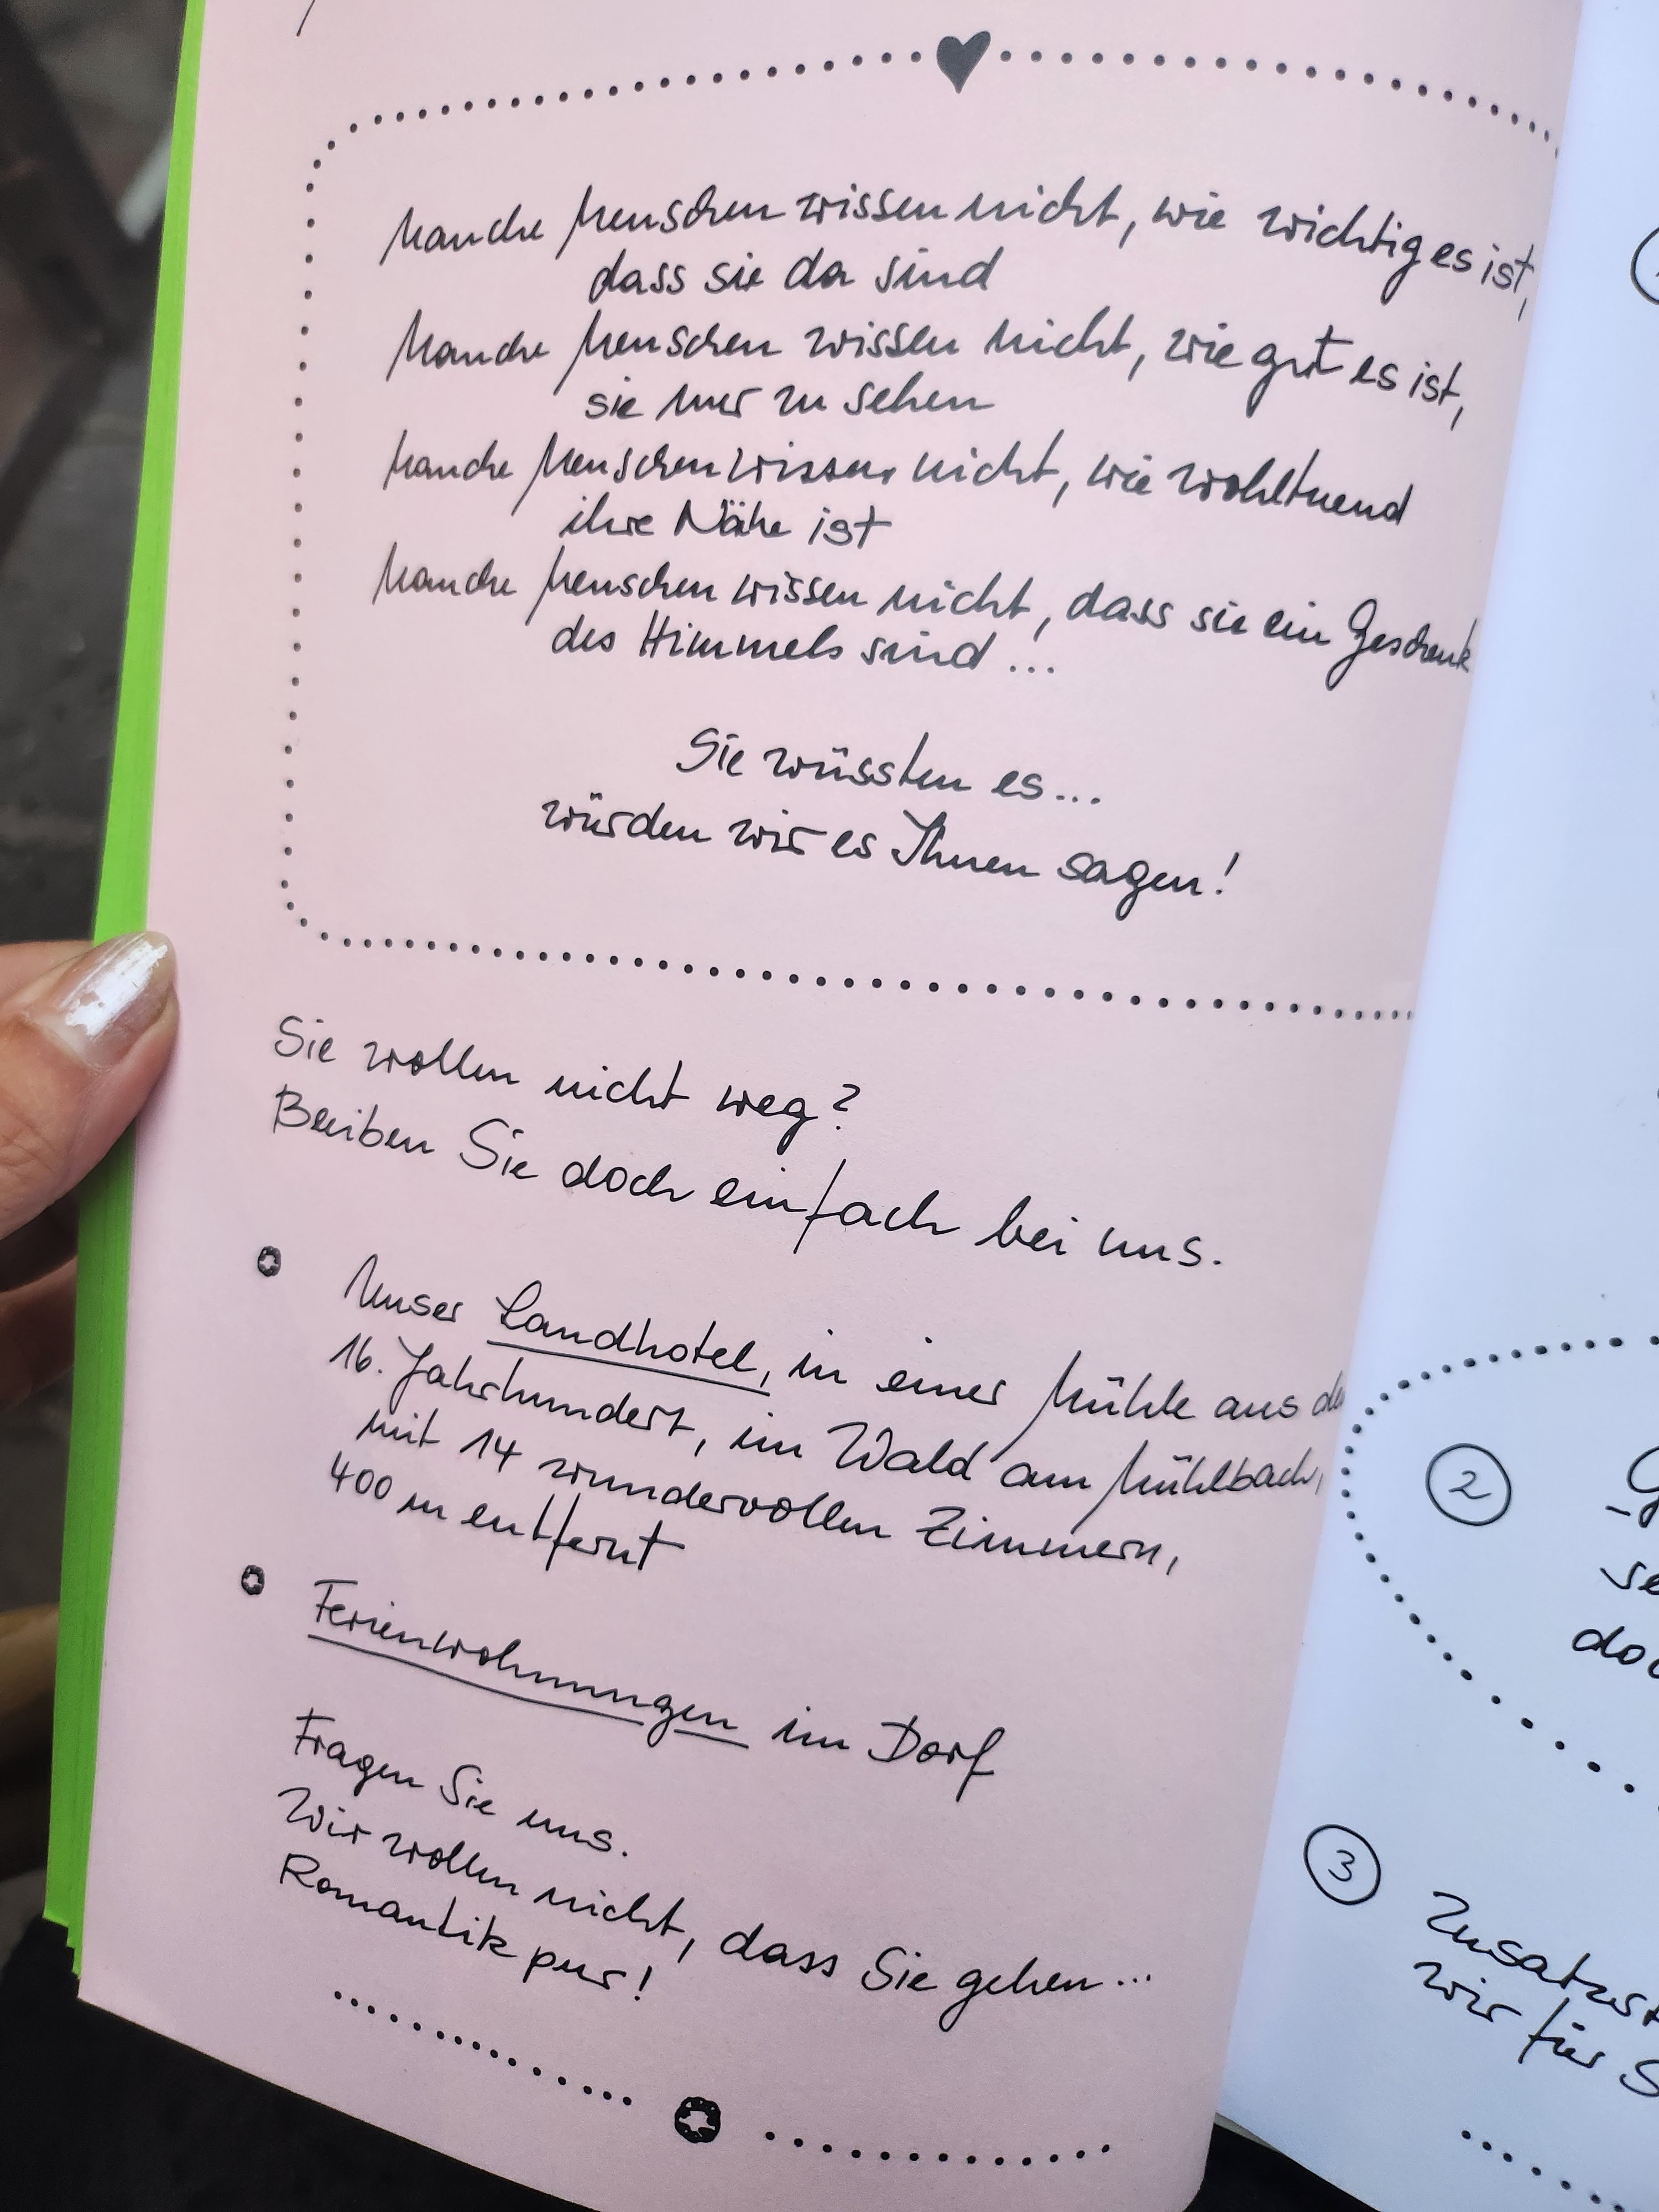 Manche Menschen wissen nicht, wie wichtig es ist,
dass sie da sind
Manche Menschen wissen nicht, wie gut es ist,
sie nur zu sehen
Manche Menschen wissen nicht, wie wohltuend
ihre Nähe ist
Manche Menschen wissen nicht, dass sie ein Geschenk
des Himmels sind...
Sie wüssten es...
würden wir es Ihnen sagen!
Sie wollen nicht weg?
Bleiben Sie doch einfach bei uns.
Unser Landhotel, in einer Mühle aus
16. Jahrhundert, im Wald am Mühlbach,
mit 14 wundervollen Zimmern,
400 m entfernt
Ferienwohnungen im Dorf
Fragen Sie uns.
Wir wollen nicht, dass Sie gehen...
Romantik pur!
2
3
wir für